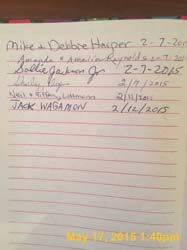 Mike & Debbie Harper 2-7-2015
Amanda & Amelia Reynolds 2-7-2015
Sallie Jackson Jr 2-7-2015
2/7/2015
Neil & Tiffany 2/11/201
JACK WAGAMON 2/12/2015
May 17, 2015 1:40pm